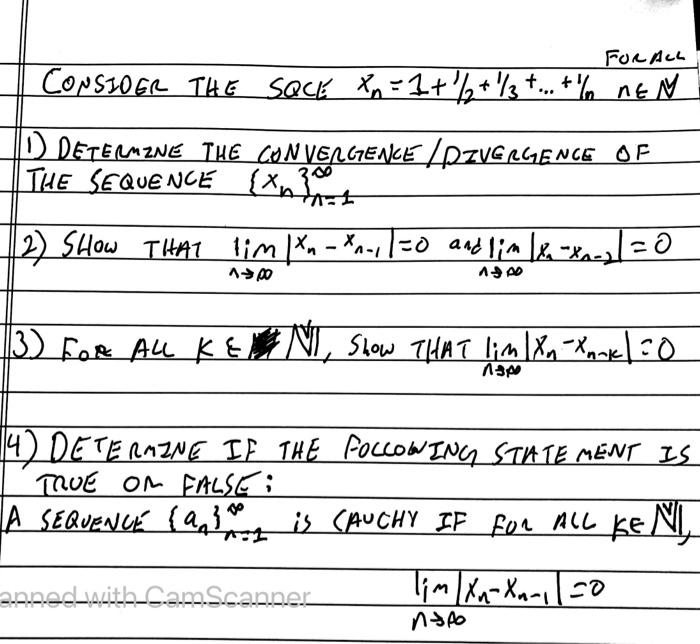 FOR ALL
CONSIDER THE SQCE Xn = 1 + 1/2 + 1/3 + ... + 1/n n ∈ N
1) DETERMINE THE CONVERGENCE / DIVERGENCE OF
THE SEQUENCE {Xn}∞n=1
2) SHOW THAT lim n→∞ |Xn - Xn-1| = 0 and lim n→∞ |Xn - Xn-2| = 0
3) FOR ALL K ∈ N, SHOW THAT lim n→∞ |Xn - Xn-K| = 0
4) DETERMINE IF THE FOLLOWING STATEMENT IS
TRUE OR FALSE:
A SEQUENCE {an}∞n=1 is CAUCHY IF FOR ALL K ∈ N,
lim n→∞ |Xn - Xn-1| = 0
anned with CamScanner